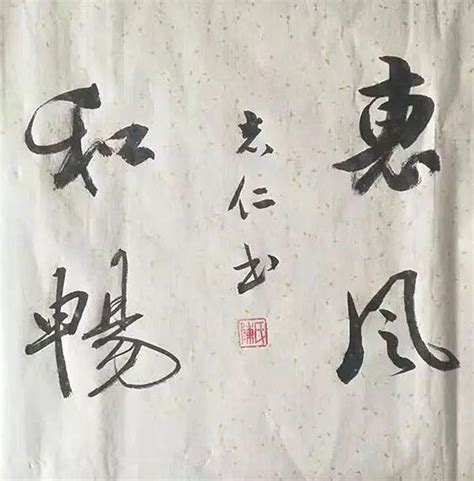 惠风
和暢
志仁书